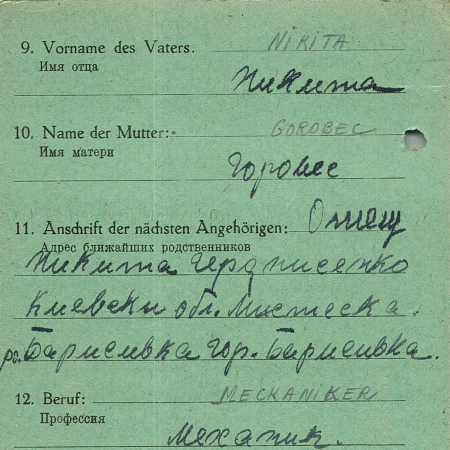 9. Vorname des Vaters. NiKITA
Имя отца
Никита
10. Name der Mutter: GOROBEC
Имя матери
Горовес
11. Anschrift der nächsten Angehörigen: Отец
Адрес ближайших родственников
Никита
Киевски обл.
Барисивка гор. Барисивка.
12. Beruf: MECKANiKER
Профессия
Механик.